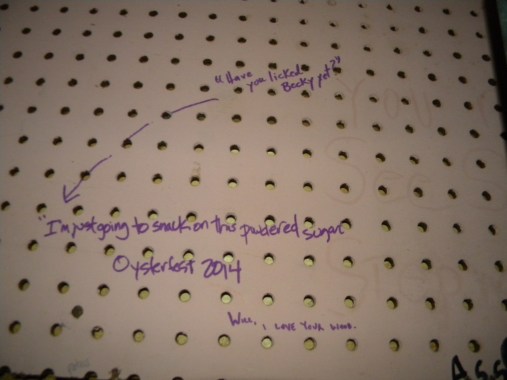 "Have
you licked
Becky yet?"
You
See S
"I'm just going to snack on this powdered sugar"
Oysterfest 2014
Will, I love your wood.
Ass